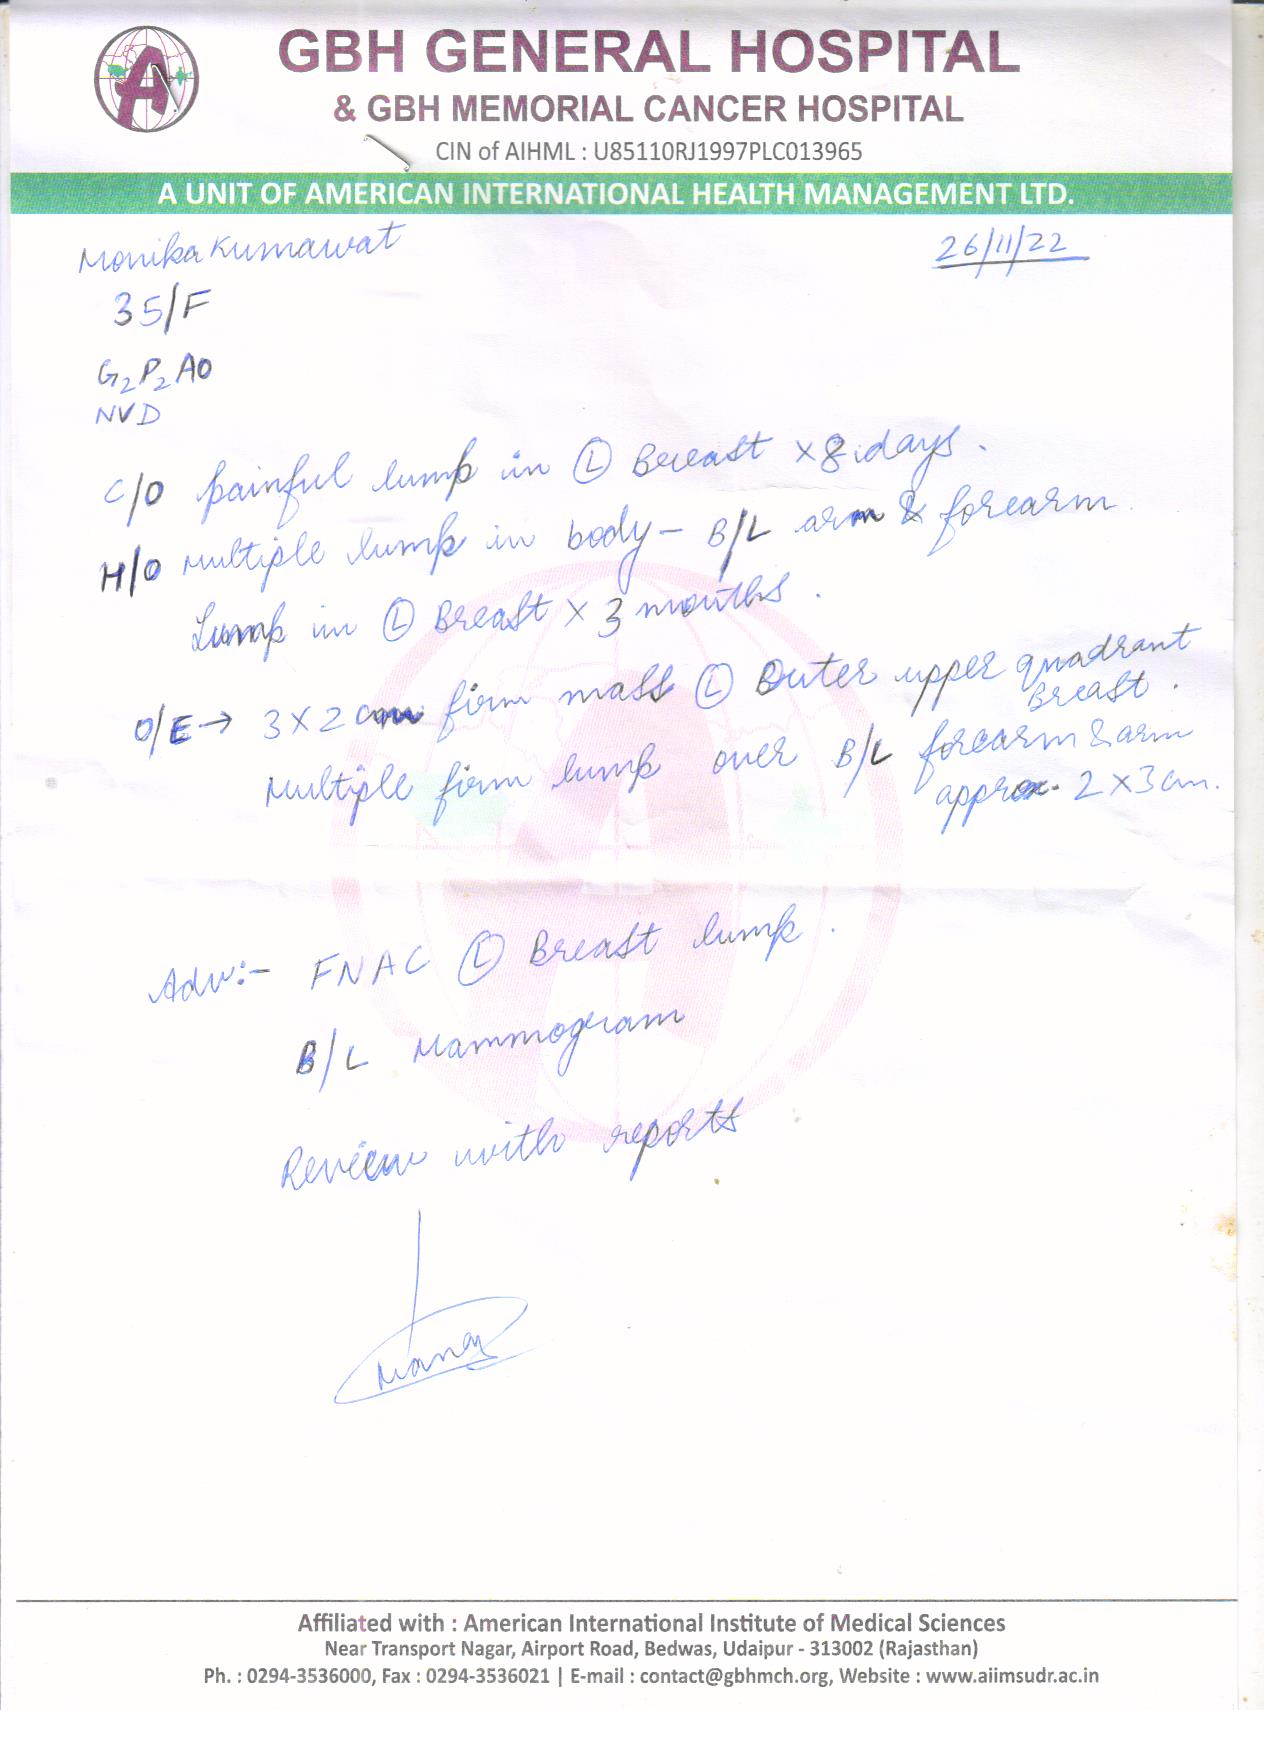 GBH GENERAL HOSPITAL
& GBH MEMORIAL CANCER HOSPITAL
CIN of AIHML : U85110RJ1997PLC013965
A UNIT OF AMERICAN INTERNATIONAL HEALTH MANAGEMENT LTD.
Monika Kumawat
26/11/22
35/F
G2P2A0
NVD
C/O painful lump in Ⓛ Breast x 8 days.
H/O Multiple lump in body - B/L arm & forearm
Lump in Ⓛ Breast x 3 months.
O/E → 3 x 2 cm firm mass Ⓛ Outer upper quadrant
Breast.
Multiple firm lump over B/L forearm & arm
approx. 2 x 3 cm.
Adv:- FNAC Ⓛ Breast lump.
B/L Mammogram
Review with reports
Affiliated with : American International Institute of Medical Sciences
Near Transport Nagar, Airport Road, Bedwas, Udaipur - 313002 (Rajasthan)
Ph. : 0294-3536000, Fax : 0294-3536021 | E-mail : contact@gbhmch.org, Website : www.aiimsudr.ac.in